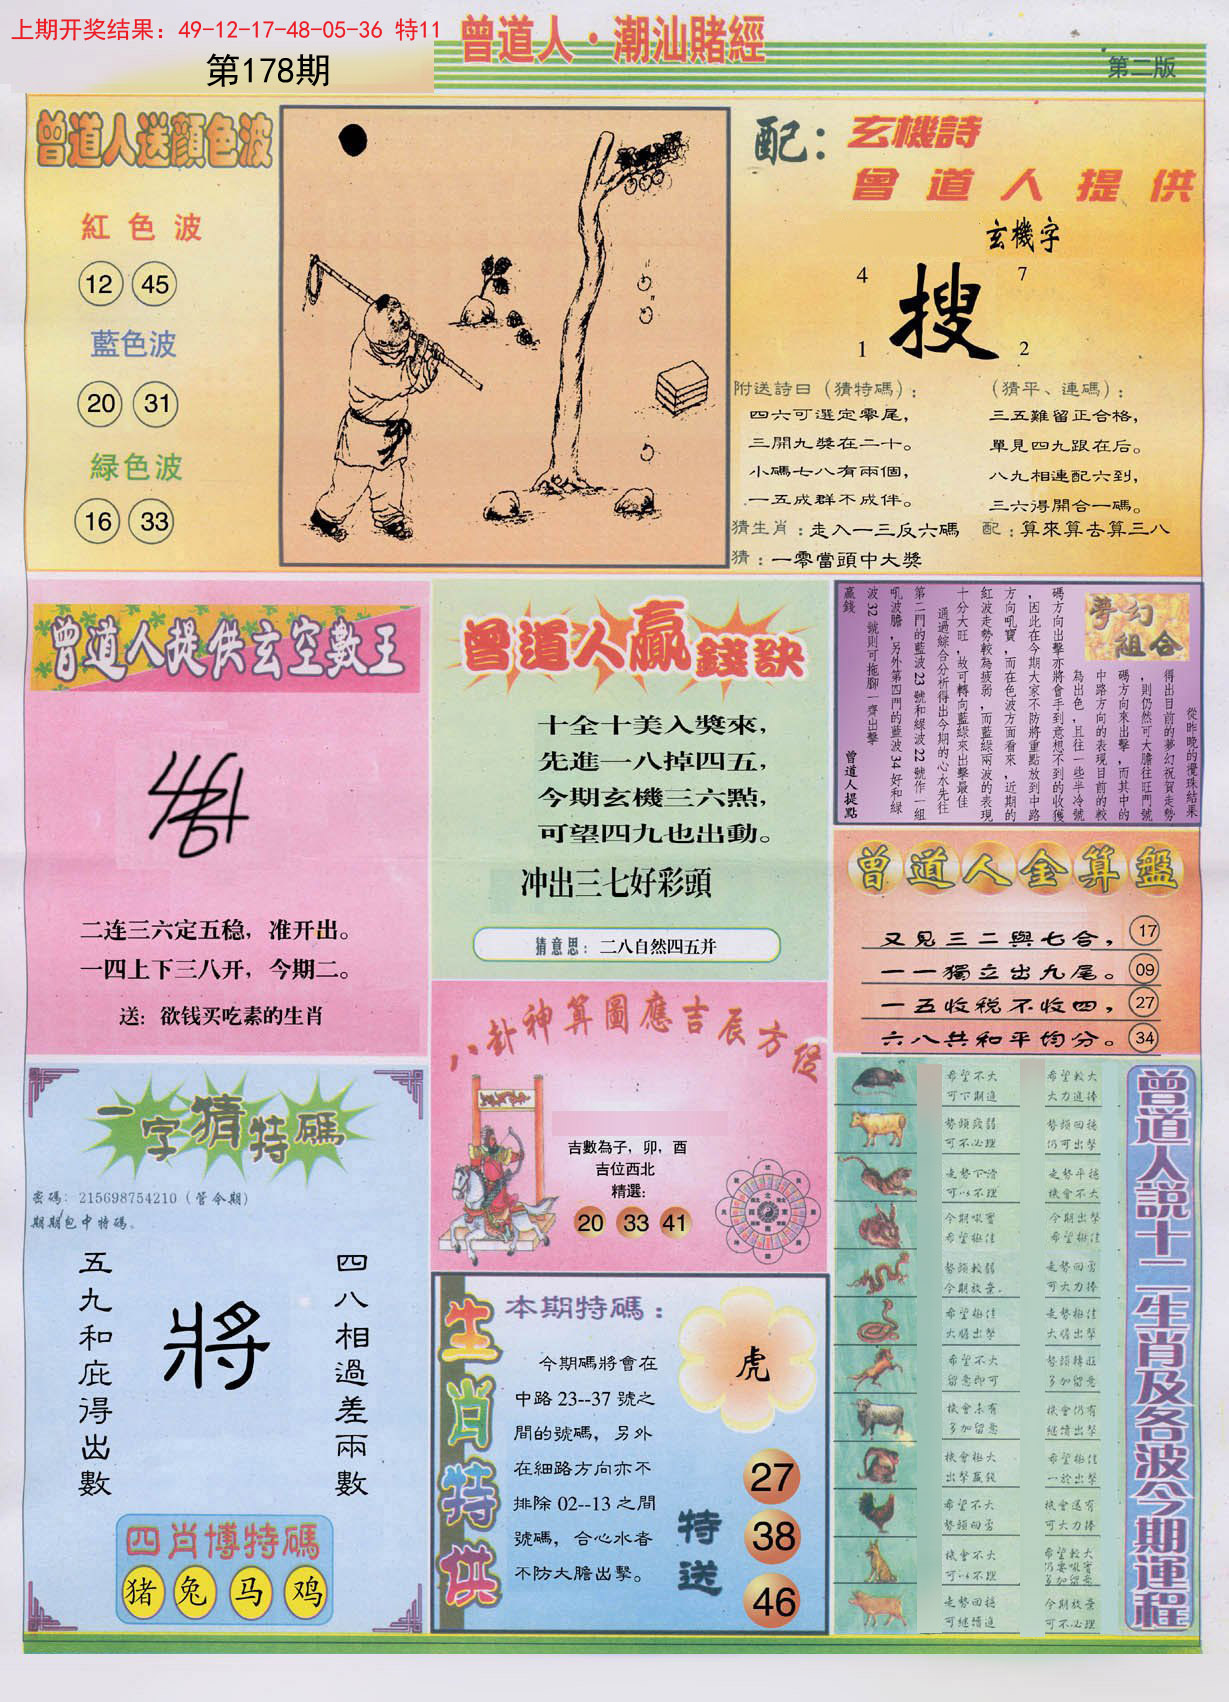 上期开奖结果：49-12-17-48-05-36 特11
第178期
曾道人·潮汕賭經
第二版
曾道人送顏色波
紅色波
12 45
藍色波
20 31
緑色波
16 33
配：玄機詩
曾道人提供
玄機字
4 7
搜
1 2
附送詩曰（猜特碼）：
四六可選定零尾，
三開九獎在二十。
小碼七八有兩個，
一五成群不成伴。
（猜平、連碼）：
三五難留正合格，
單見四九跟在后。
八九相連配六到，
三六得開合一碼。
猜生肖：走入一三反六碼
配：算來算去算三八
猜：一零當頭中大獎
曾道人提供玄空數王
二连三六定五稳，准开出。
一四上下三八开，今期二。
送：欲钱买吃素的生肖
曾道人贏錢訣
十全十美入獎來，
先進一八掉四五，
今期玄機三六點，
可望四九也出動。
冲出三七好彩頭
猜意思：二八自然四五并
夢幻組合
從昨晚的攪珠結果
得出目前的夢幻祝賀走勢
，則仍然可大膽往旺門號
碼方向來出擊，而其中的
中路方向的表現目前的較
為出色，且往一些半冷號
碼方向出擊亦將會手到意想不到的收獲
，因此在今期大家不防將重點放到中路
方向吼寶，而在色波方面看來，近期的
紅波走勢較為疲弱，而藍綠兩波的表現
十分大旺，故可轉向藍綠來出擊最佳
通過綜合分析得出今期的心水先往
第二門的藍波23號和綠波22號作一組
吼波膽，另外第四門的藍波34好和綠
波32號則可拖腳一齊出擊
贏錢
曾道人提點
曾道人金算盤
又見三二與七合， 17
一一獨立出九尾。 09
一五收税不收四， 27
六八共和平均分。 34
八卦神算圖應吉辰方位
吉數為子，卯，酉
吉位西北
精選：
20 33 41
一字猜特碼
密碼：215698754210（管令期）
期期包中特碼。
五九和庇得出數
將
四八相過差兩數
四肖博特碼
猪 兔 马 鸡
生肖特供
本期特碼：
今期碼將會在
中路23--37號之
間的號碼，另外
在細路方向亦不
排除02--13之間
號碼，合心水者
不防大膽出擊。
虎
特送
27
38
46
曾道人説十二生肖及各波今期運程
希望不大 希望較大
可下期進 大力進捧
勢頭段弱 勢頭回穩
可不必理 仍可出擊
走勢下滑 走勢平穩
可以不理 機會不大
今期吼寶 今期出擊
希望極佳 希望極佳
勢頭較弱 走勢回勇
今期放棄。 可大力捧
希望極佳 走勢極佳
大膽出擊 大膽出擊
希望不大 勢頭轉旺
留意即可 多加留意
機會未有 機會仍有
多加留意 繼續出擊
機會極大 希望極佳
出擊贏錢 一於出擊
希望不大 機會還有
勢頭回勇 可大力捧
機會不大 希望較大
可以不理
走勢回穩 今期放棄
可繼續進 可不必理